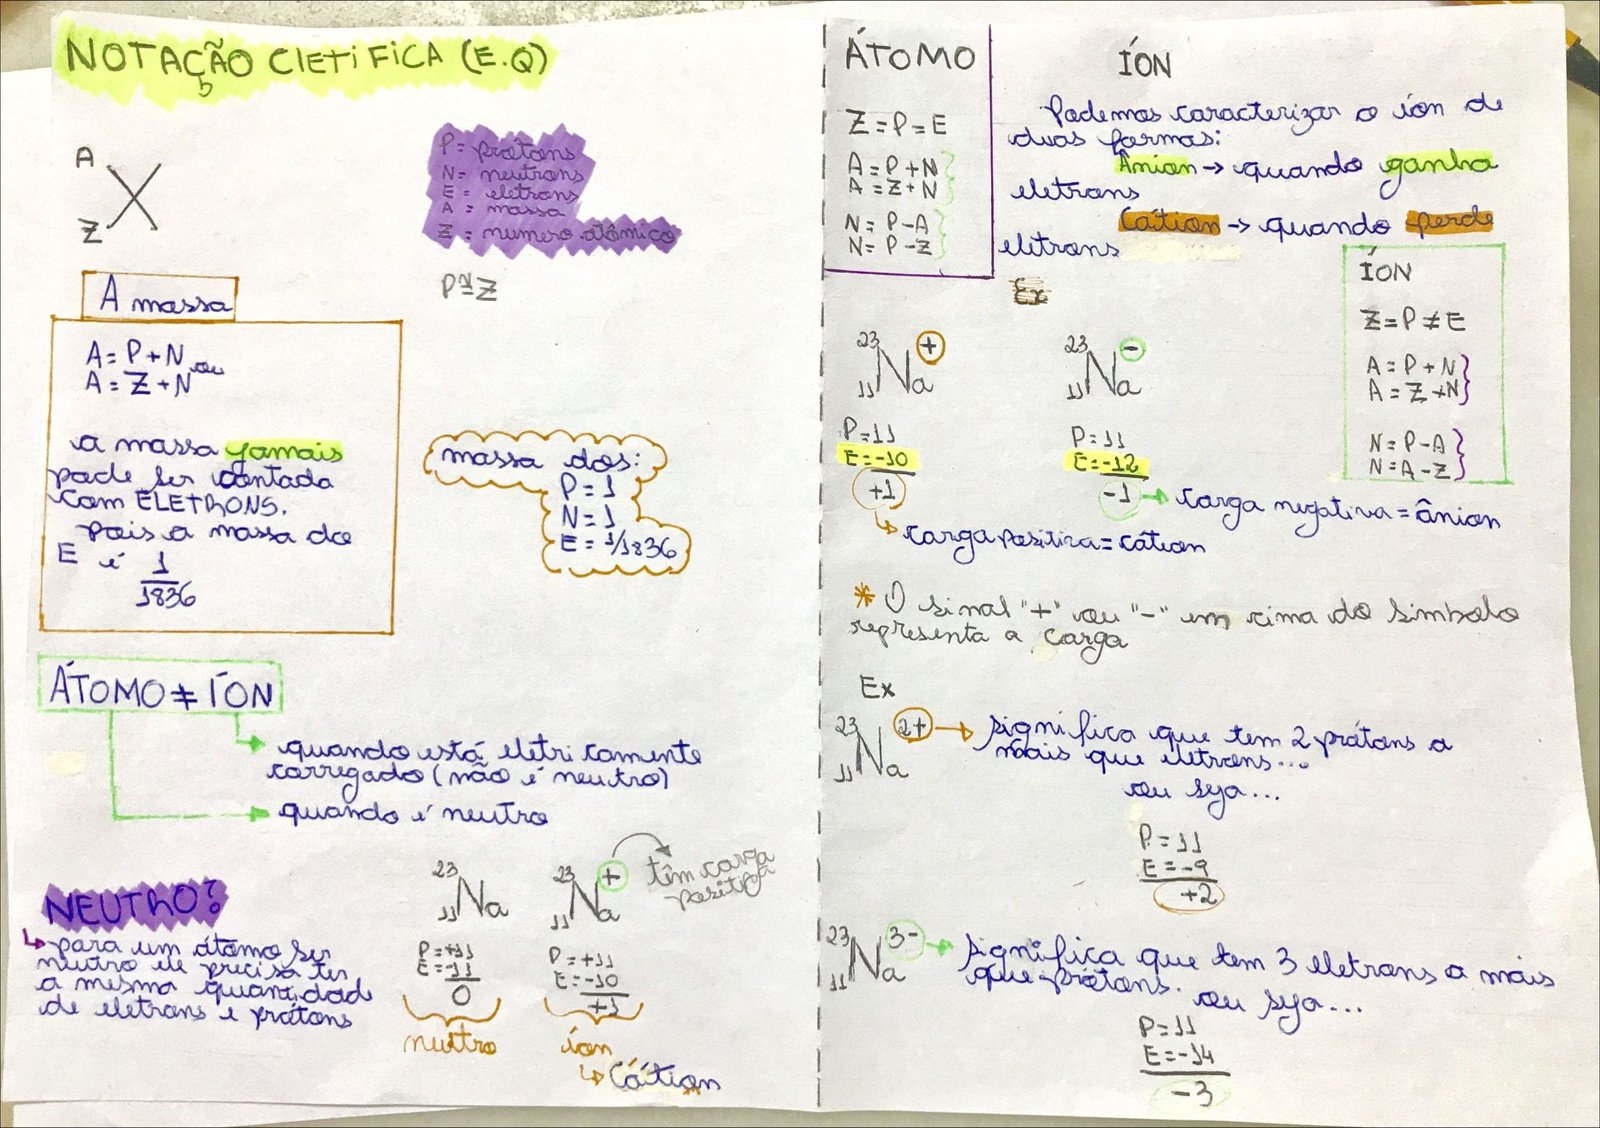 NOTAÇÃO CIETIFICA (E.Q)
A
X
Z
P = prótons
N = neutrons
E = eletrons
A = massa
Z = numero atômico
P≅Z
A massa
A = P + N ou
A = Z + N
a massa jamais
pode ser contada
com ELETRONS.
pois a massa do
E é 1
1836
massa dos:
P = 1
N = 1
E = 1/1836
ÁTOMO ≠ ÍON
quando está eletricamente
carregado (não é neutro)
quando é neutro
NEUTRO?
↳ para um átomo ser
neutro ele precisa ter
a mesma quantidade
de eletrons e prótons
23
11 Na
P = +11
E = -11
0
neutro
23 +
11 Na
têm carga
positiva
P = +11
E = -10
+1
íon
↳ Cátion
ÁTOMO
Z = P = E
A = P + N
A = Z + N
N = P - A
N = P - Z
ÍON
Podemos caracterizar o íon de
duas formas:
Ânion → quando ganha
eletrons
Cátion → quando perde
eletrons
Ex
ÍON
Z = P ≠ E
A = P + N
A = Z + N
N = P - A
N = A - Z
23 +
11 Na
P = 11
E = -10
+1
↳ carga positiva = cátion
23 -
11 Na
P = 11
E = -12
-1 → carga negativa = ânion
* O sinal "+" ou "-" em cima do simbolo
representa a carga
Ex
23 2+
11 Na
→ significa que tem 2 prótons a
mais que eletrons...
ou seja...
P = 11
E = -9
+2
23 3-
11 Na
→ significa que tem 3 eletrons a mais
que prótons.
ou seja...
P = 11
E = -14
-3